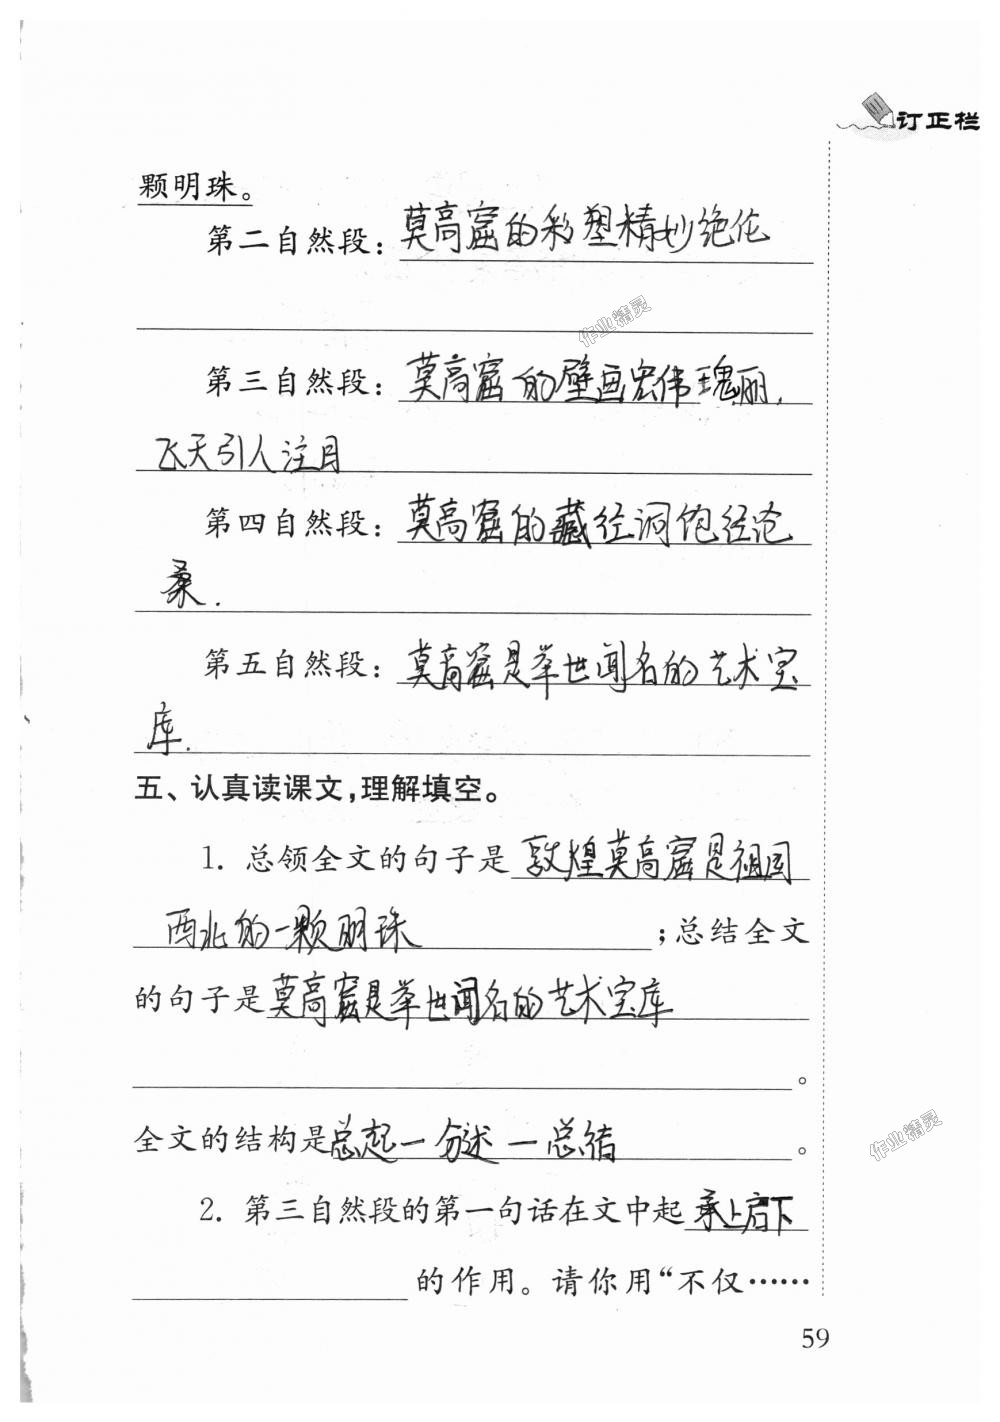 订正栏
颗明珠。
第二自然段：莫高窟的彩塑精妙绝伦
作业精灵
第三自然段：莫高窟的壁画宏伟瑰丽，
飞天引人注目
第四自然段：莫高窟的藏经洞饱经沧
桑.
第五自然段：莫高窟是举世闻名的艺术宝
库.
五、认真读课文，理解填空。
1. 总领全文的句子是敦煌莫高窟是祖国
西北的一颗明珠；总结全文
的句子是莫高窟是举世闻名的艺术宝库
。
全文的结构是总起一分述一总结。
作业精灵
2. 第三自然段的第一句话在文中起承上启下
的作用。请你用“不仅……
59